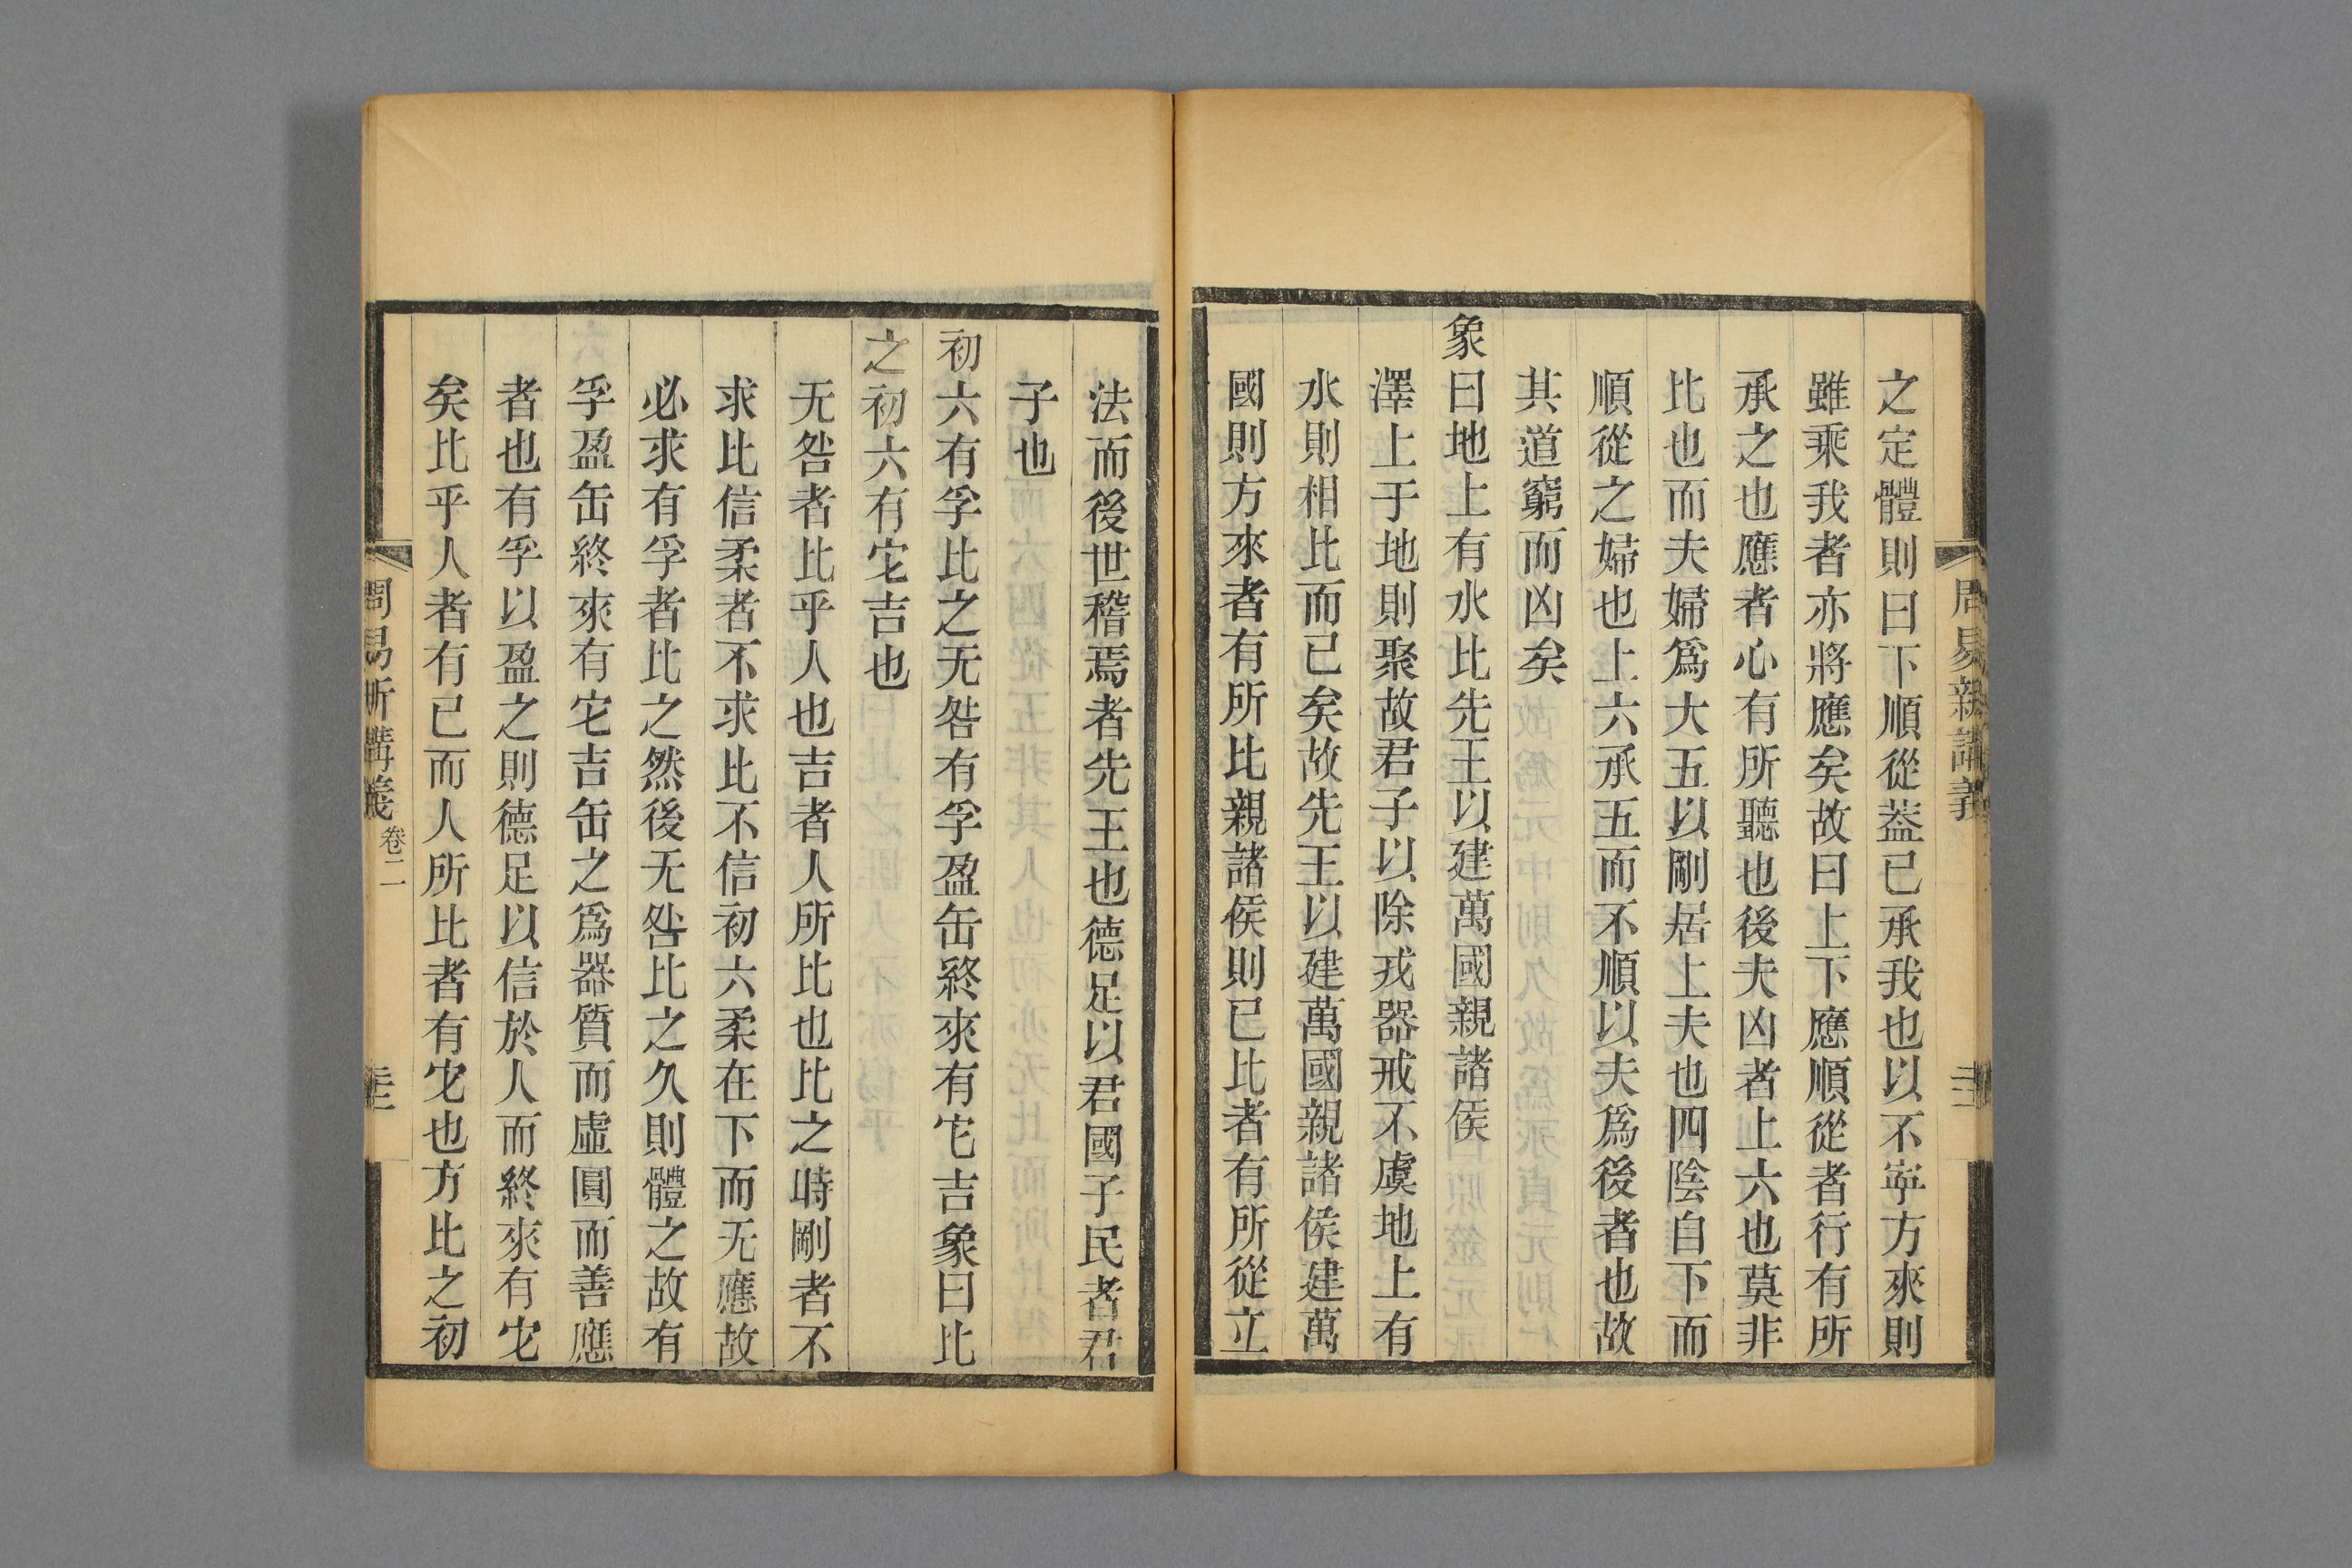 之定體則曰下順從葢已承我也以不寜方來則
雖乘我者亦將應矣故曰上下應順從者行有所
承之也應者心有所聽也後夫凶者上六也莫非
比也而夫婦爲大五以剛居上夫也四陰自下而
順從之婦也上六承五而不順以夫爲後者也故
其道窮而凶矣
象曰地上有水比先王以建萬國親諸侯
澤上于地則聚故君子以除戎器戒不虞地上有
水則相比而已矣故先王以建萬國親諸侯建萬
國則方來者有所比親諸侯則已比者有所從立
周易新講義
法而後世稽焉者先王也德足以君國子民者君
子也
初六有孚比之无咎有孚盈缶終來有它吉象曰比
之初六有它吉也
无咎者比乎人也吉者人所比也比之時剛者不
求比信柔者不求比不信初六柔在下而无應故
必求有孚者比之然後无咎比之久則體之故有
孚盈缶終來有它吉缶之爲器質而虛圓而善應
者也有孚以盈之則德足以信於人而終來有它
矣比乎人者有已而人所比者有它也方比之初
周易新講義 卷二